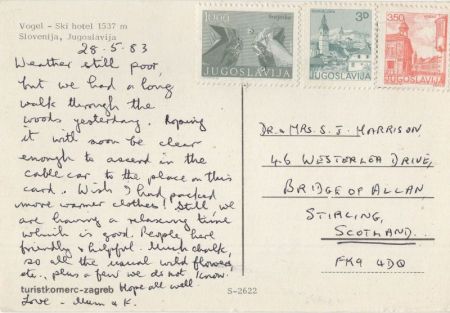 Vogel - Ski hotel 1537 m
Slovenija, Jugoslavija
28.5.83
Weather still poor,
but we had a long
walk through the
woods yesterday. Hoping
it will soon be clear
enough to ascend in the
cable car to the place on this
card. Wish I had packed
more warmer clothes! Still we
are having a relaxing time
which is good. People here
friendly & helpful. Much chalk,
so all the usual wild flowers,
etc., plus a few we do not know.
turistkomerc-zagreb Hope all well.
Love - Mum & K.
S-2622
10.00
JUGOSLAVIJA
3D
JUGOSLAVIJA
350
JUGOSLAVIJA
DR. & MRS. S. J. HARRISON
46 WESTERLEA DRIVE,
BRIDGE OF ALLAN,
STIRLING,
SCOTLAND.
FK9 4DQ